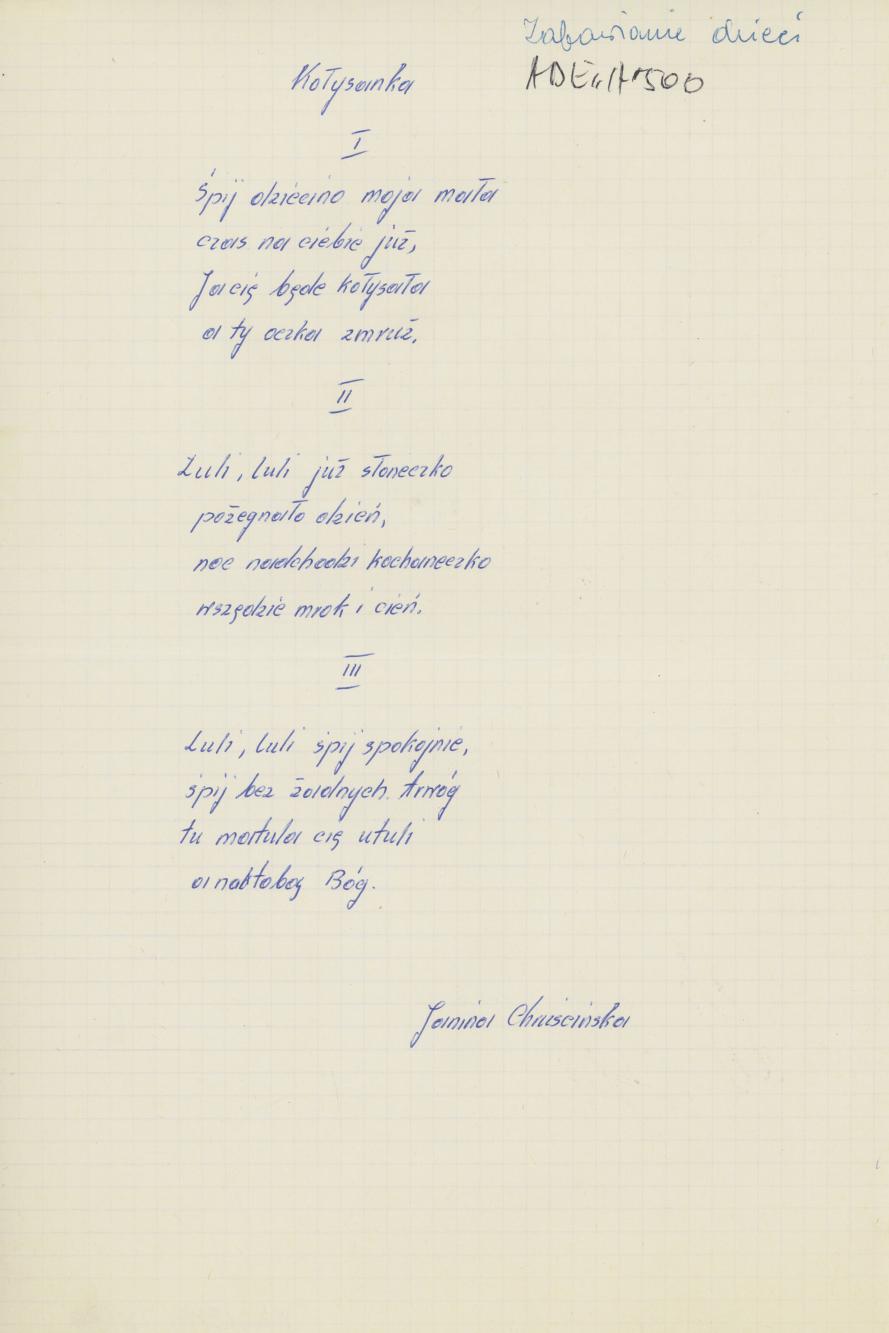 Zabawianie dzieci
ADE "A" 500
Kołysanka
I
Śpij dziecino moja mała
czas na ciebie już,
Ja cię będe kołysała
a ty oczka zmruż.
II
Luli, luli już słoneczko
pożegnało dzień,
noc nadchodzi kochaneczko
wszędzie mrok i cień.
III
Luli, luli śpij spokojnie,
śpij bez żadnych trwóg
tu matula cię utuli
a nad tobą Bóg.
Janina